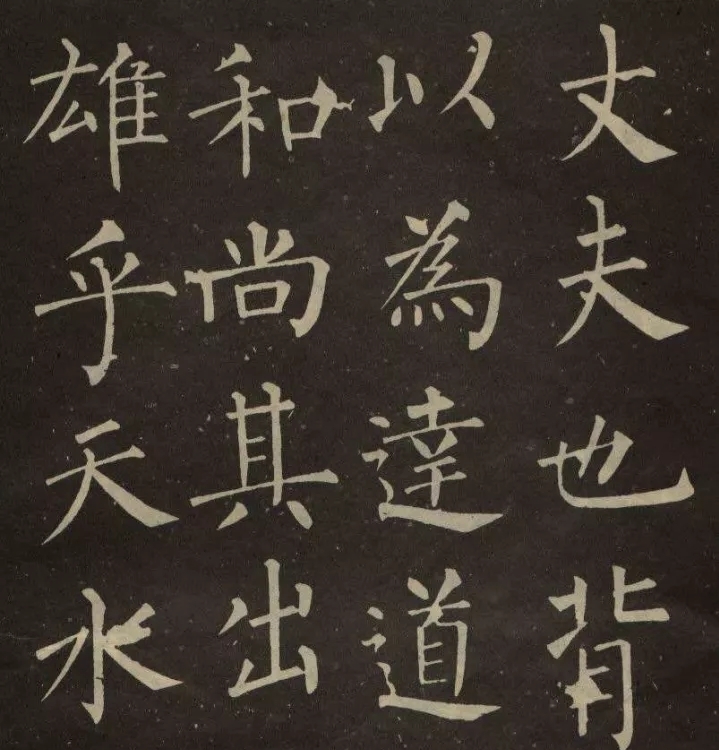 丈夫也背
以為達道
和尚其出
雄乎天水